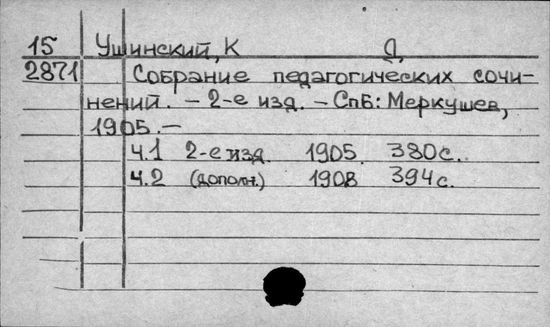 15 Ушинский, К Д,
2871 Собрание педагогических сочи-
нений. – 2-е изд. – СпБ: Меркушев,
1905. –
ч.1 2-е изд. 1905. 380с.
ч.2 (дополн.) 1908 394с.